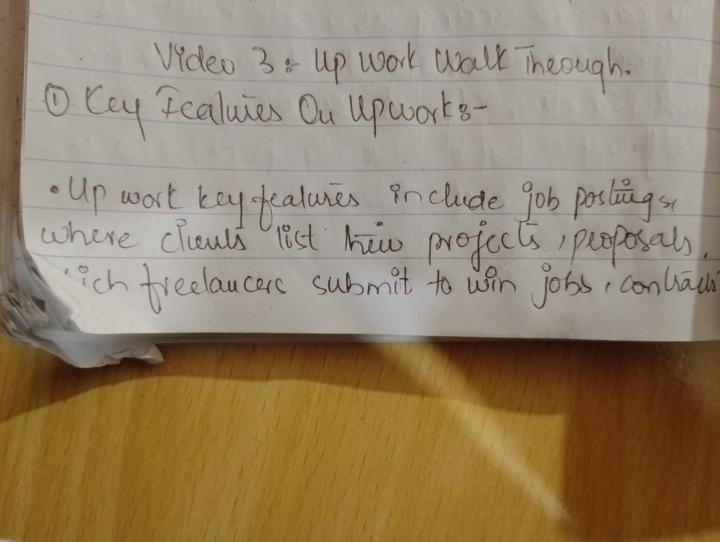 Video 3 :- Up Work Walk Through.
① Key Features On Upwork :-
• Up work key features include job postings,
where clients list their projects, proposals,
freelancers submit to win jobs, contracts